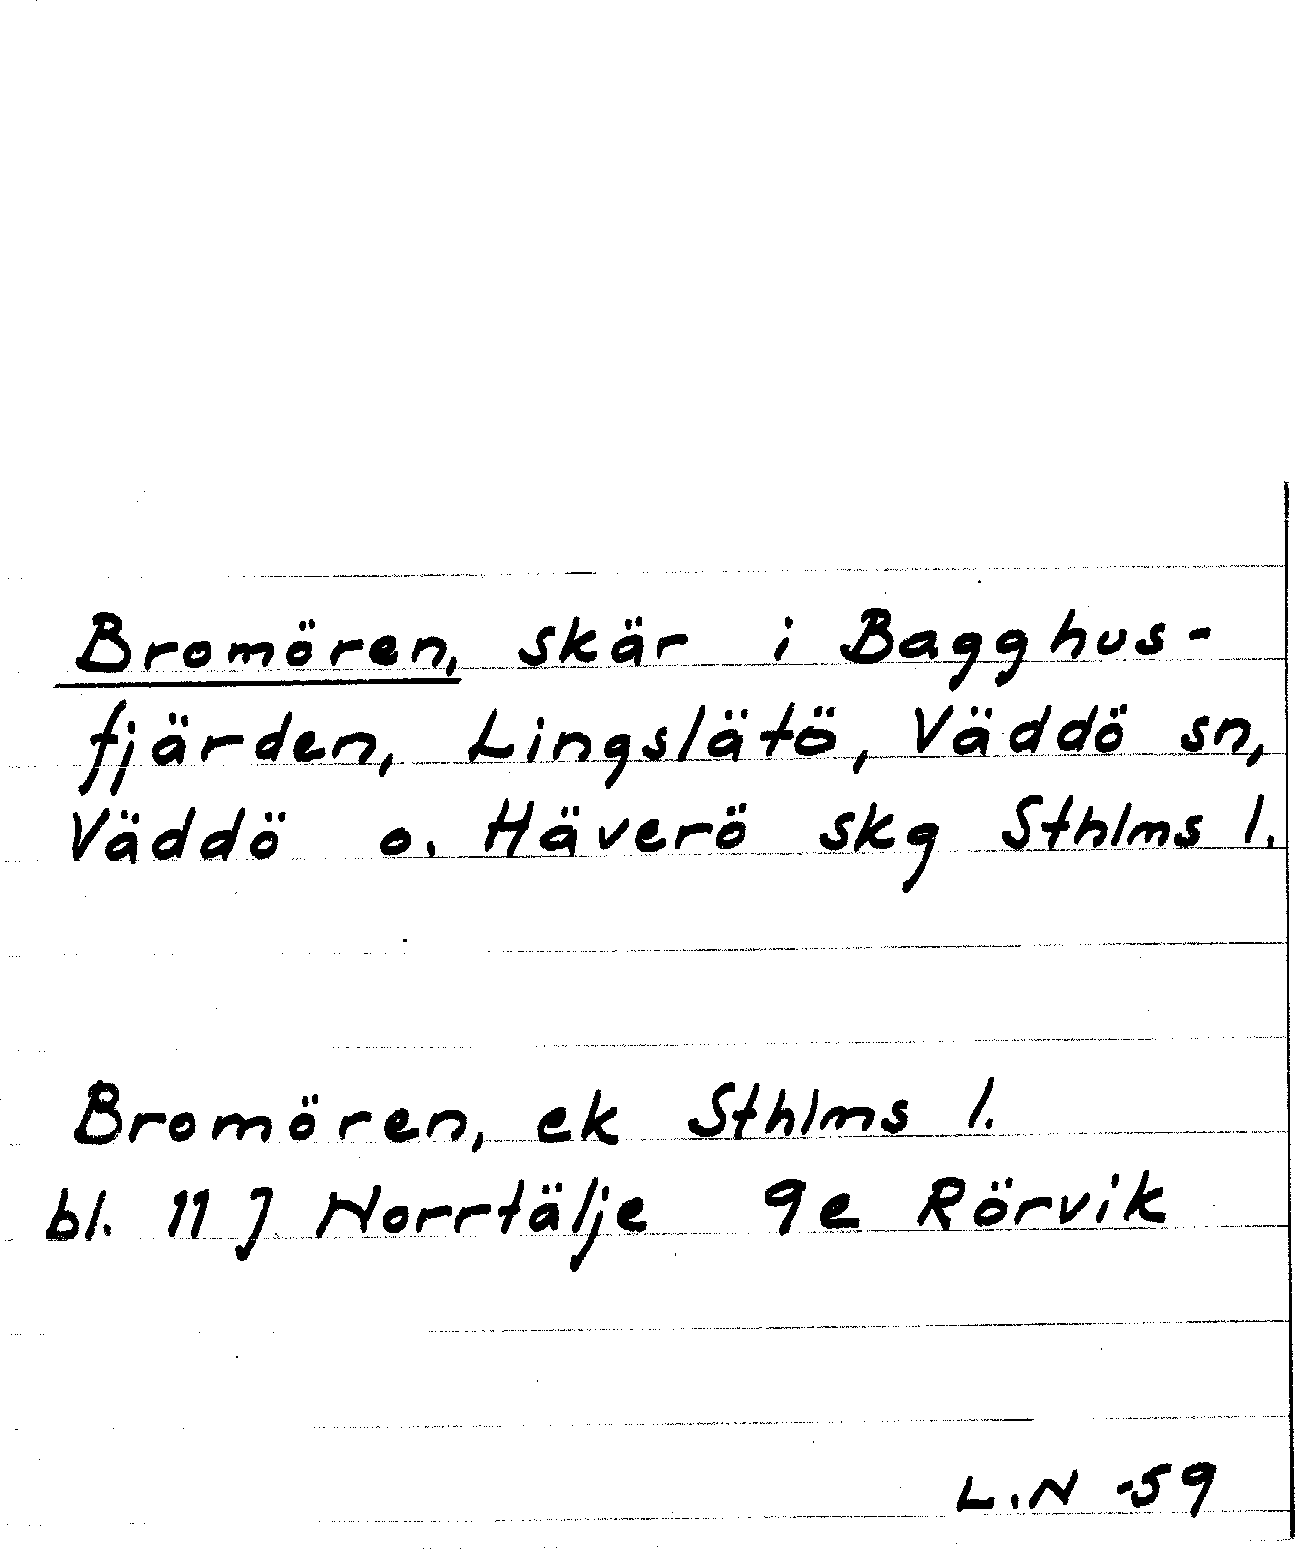 Bromören, skär i Bagghus-
fjärden, Lingslätö, Väddö sn,
Väddö o. Häverö skg Sthlms l.
Bromören, ek Sthlms l.
bl. 11 J Norrtälje 9e Rörvik
L.N -59